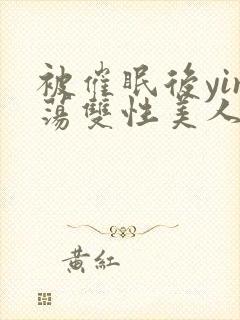 被催眠後yin
蕩雙性美人
黃紅